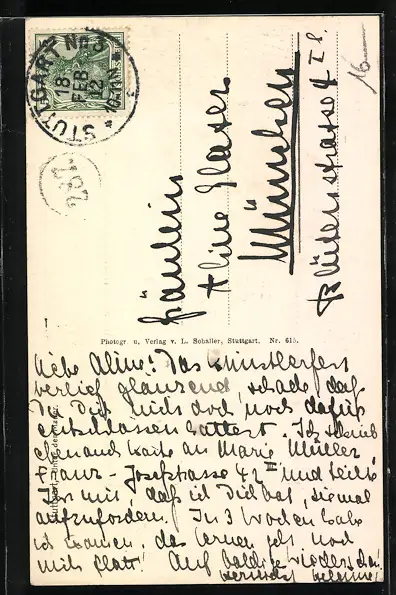 STUTTGART No 3
18
FEB
12
Fräulein
Aline Glaser
München
Blütenstrasse 4 I l.
16
Photogr. u. Verlag v. L. Schaller, Stuttgart. Nr. 615.
Liebe Aline! Das Künstlerfest
verlief glänzend, schade daß
Du Dich nicht doch noch dafür
entschlossen hattest. Ich schrieb
eben auch Karte an Marie Müller
Franz-Josefstrasse 42 und teilte
ihr mit, daß ich Dich bat, sie mal
aufzufordern. In 3 Wochen habe
ich
Auf baldiges Wiedersehn